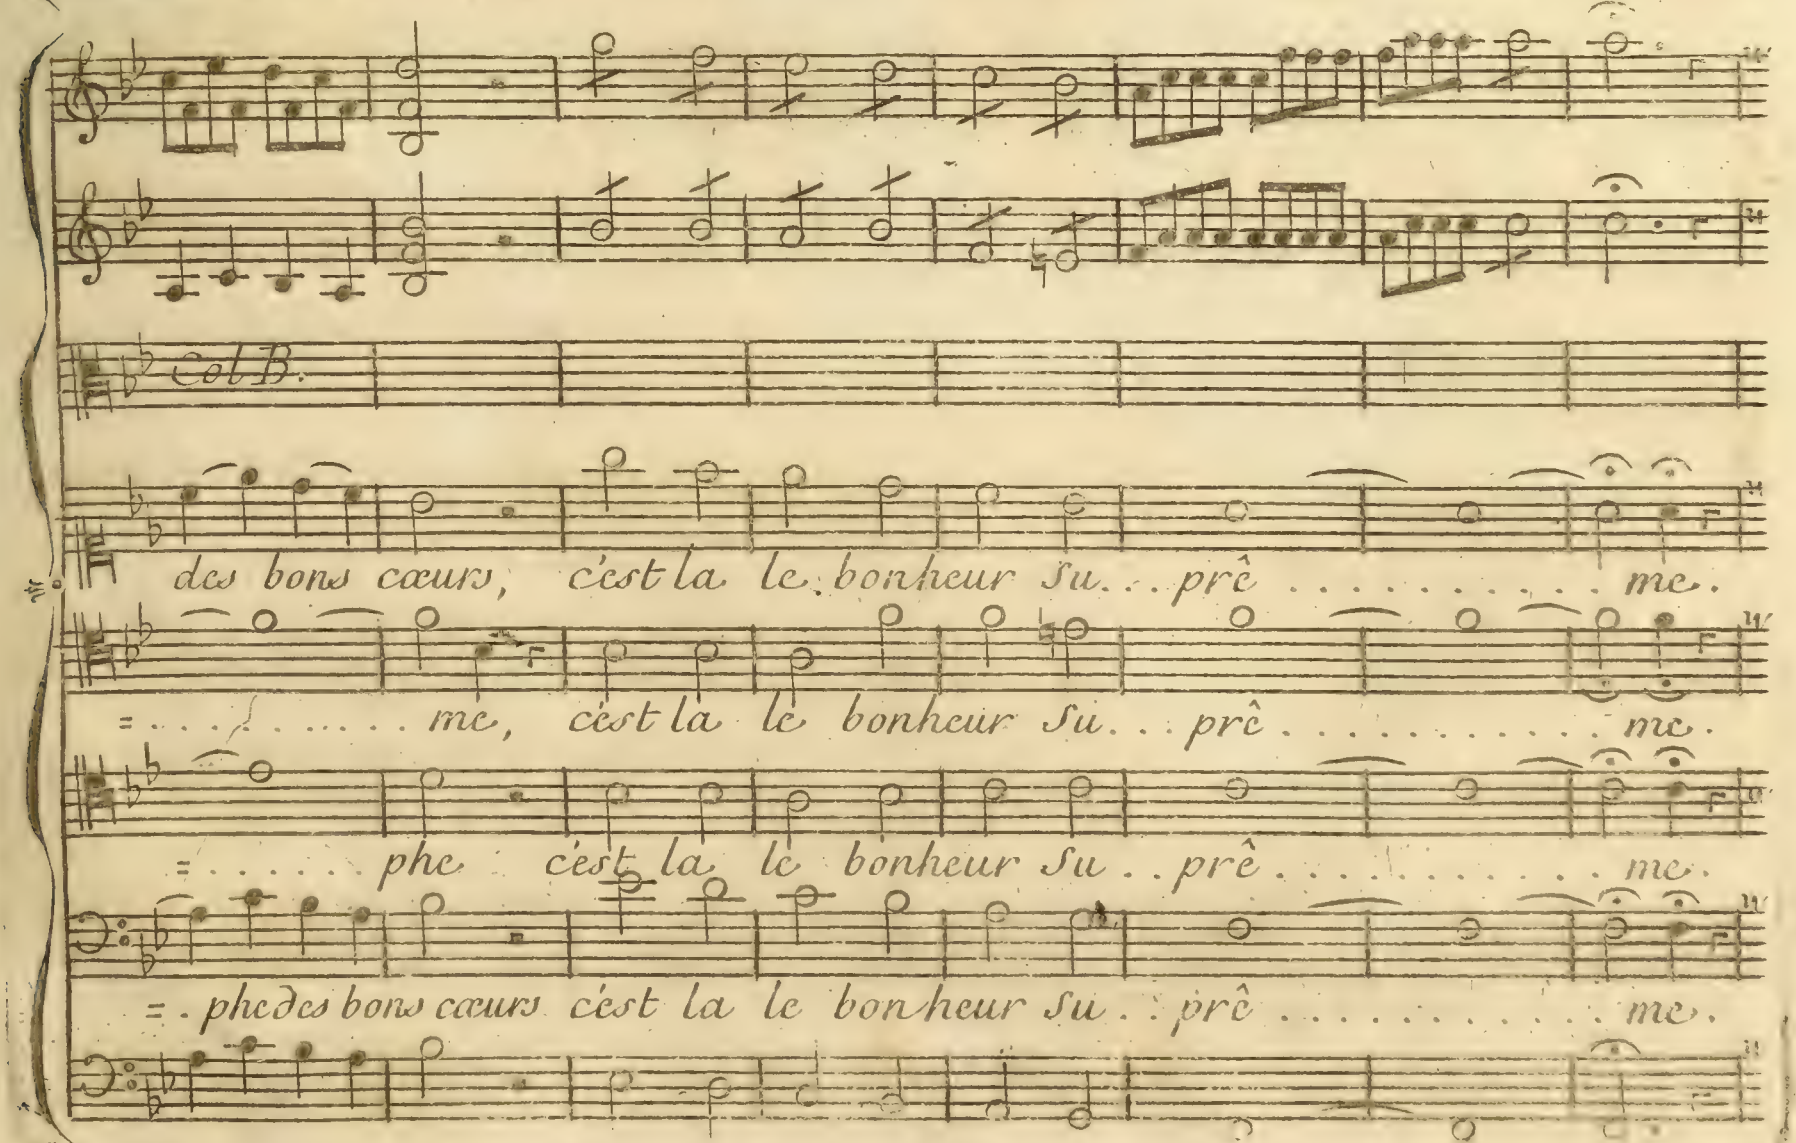 Col B.
des bons cœurs, c'est la le bonheur su... prê . . . . . . . . . . . me.
= . . . . . . . . . . me, c'est la le bonheur su... prê . . . . . . . . . . . me.
= . . . . . . . phe c'est la le bonheur su .. prê . . . . . . . . . . . me.
= . phe des bons cœurs c'est la le bonheur su . . . prê . . . . . . . . . . . me.